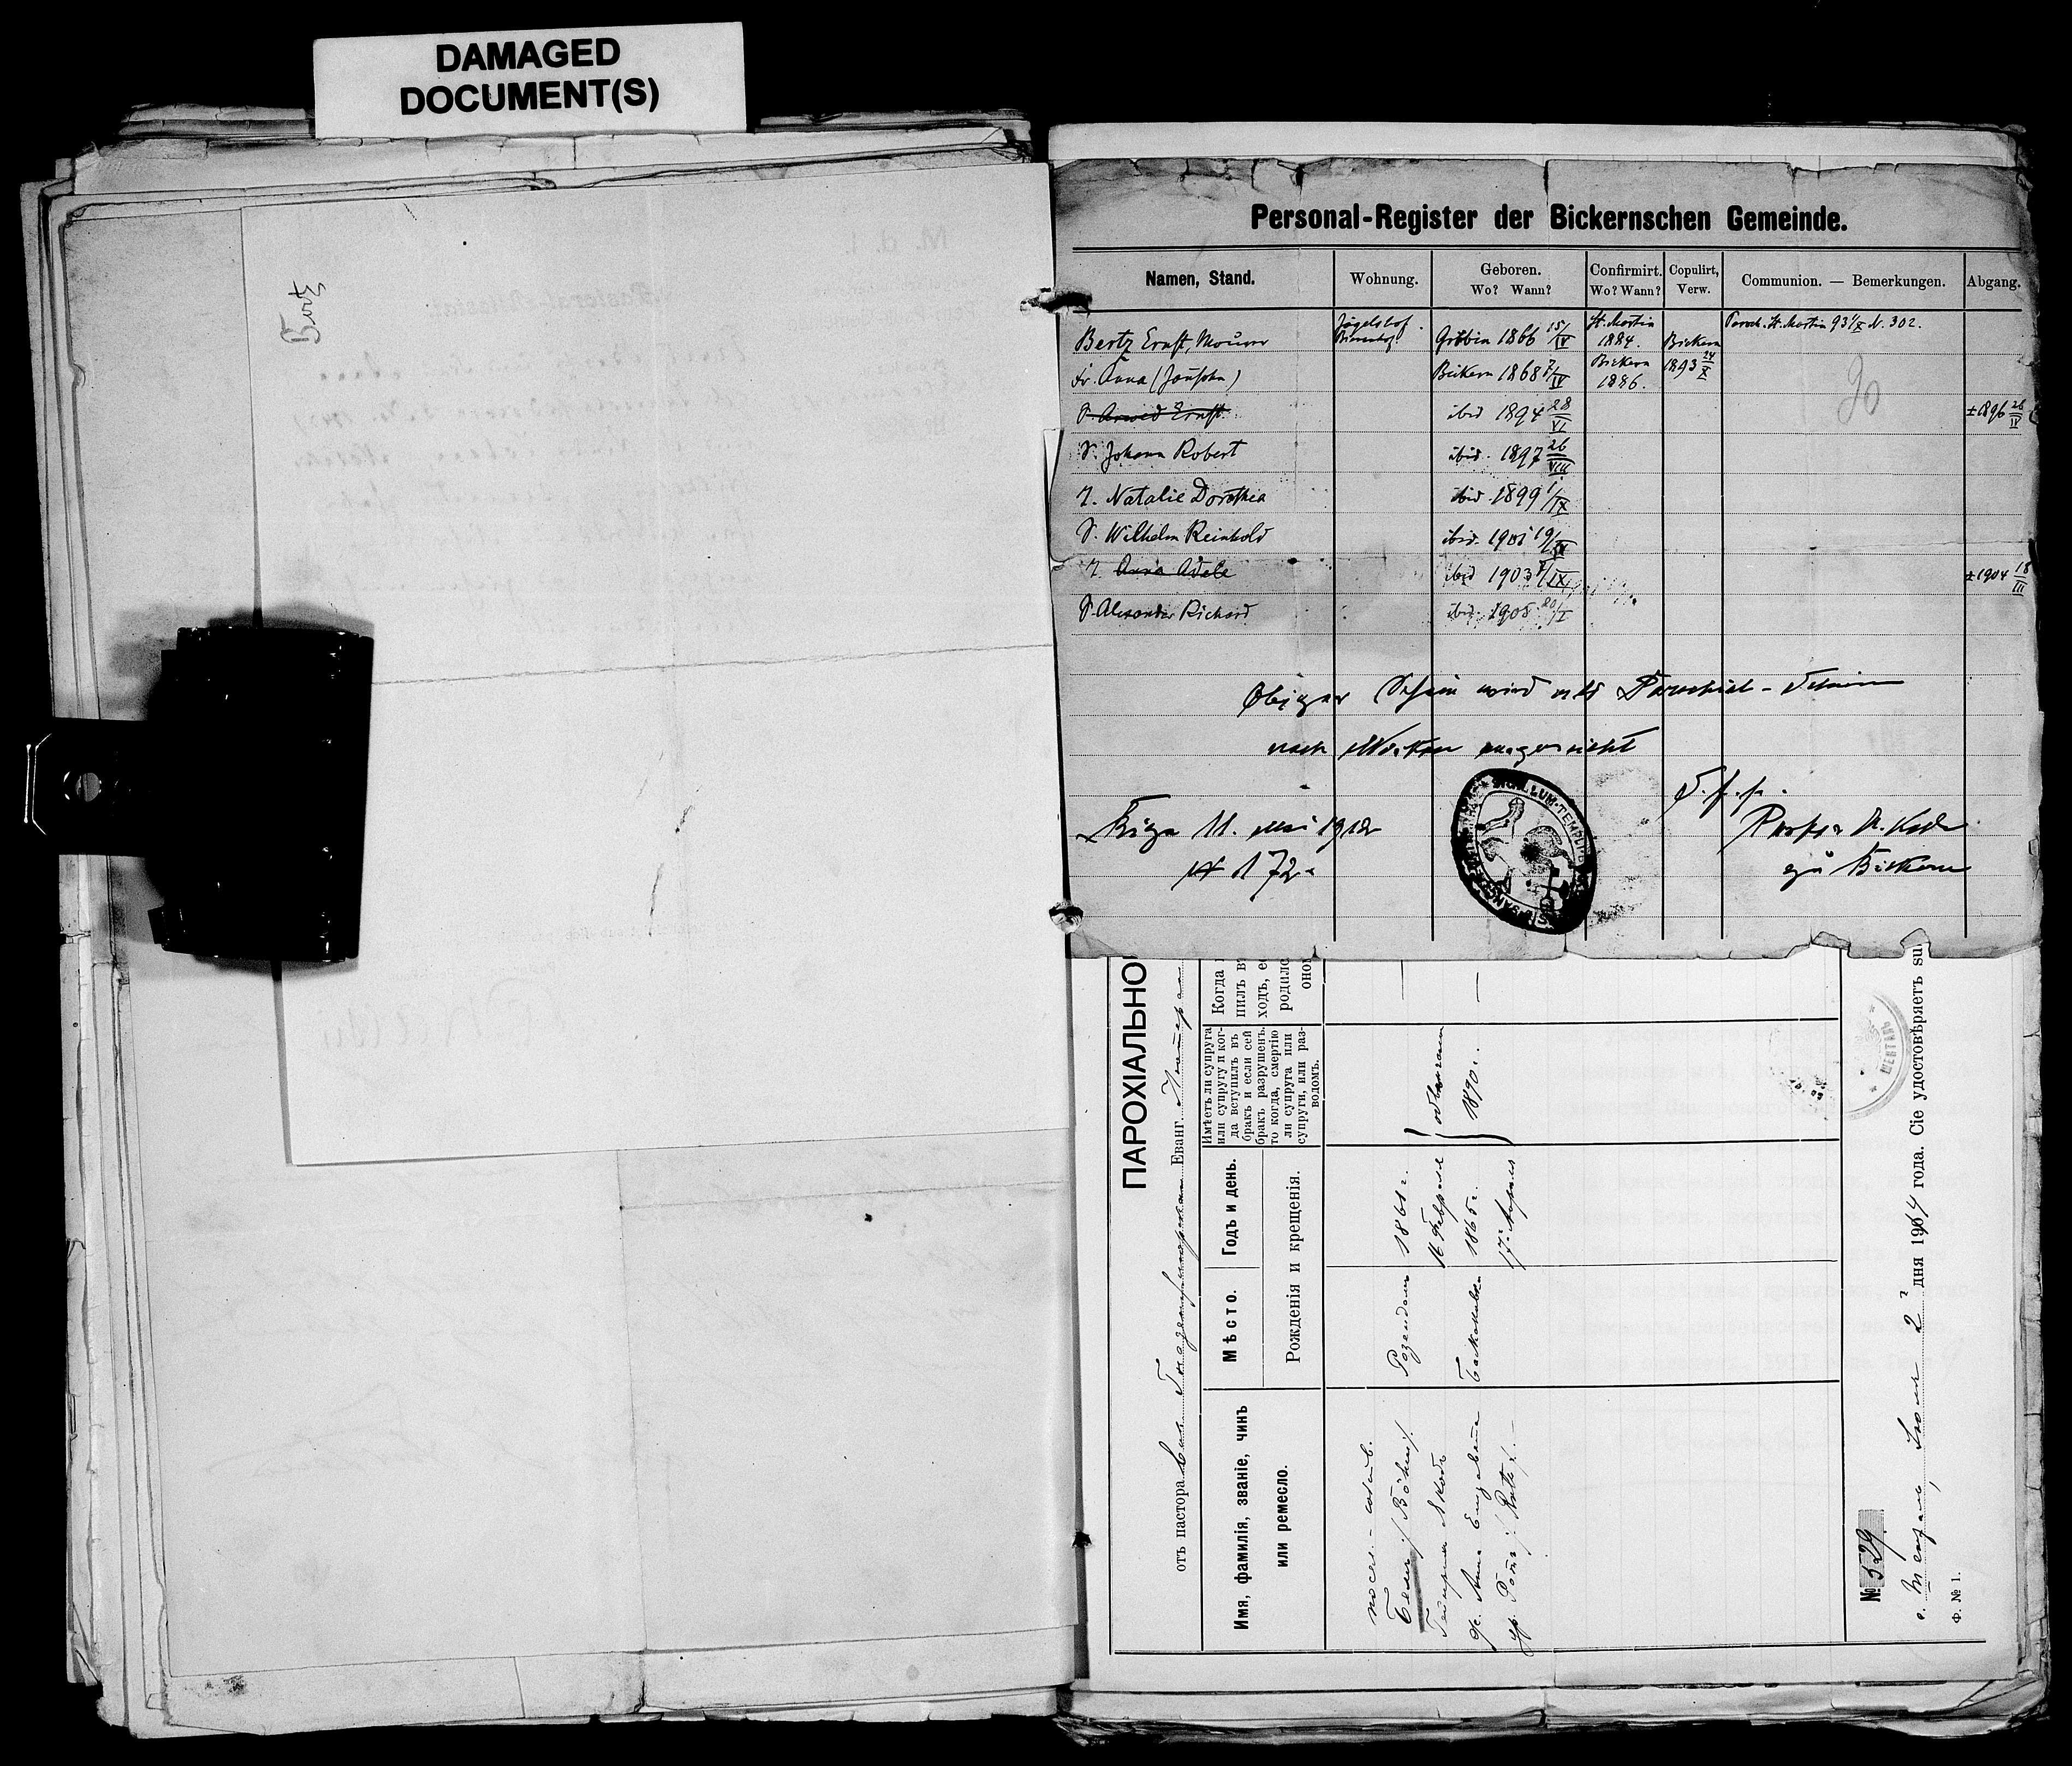 DAMAGED
DOCUMENT(S)
Personal-Register der Bickernschen Gemeinde.
Namen, Stand.
Wohnung.
Geboren.
Wo? Wann?
Confirmirt.
Wo? Wann?
Copulirt,
Verw.
Communion. — Bemerkungen.
Abgang.
Bertz Ernst, Maurer Jägelshof Grobin 1866 15/IV St. Martin 1884. Bickern Paroch. St. Martin 93 1/X N. 302.
Fr. Anna (Jansohn) Bickern 1868 7/IV Bickern 1886. 1893 24/X
S. Arwed Ernst ibid 1894 28/VI ± 1896 26/IV
S. Johann Robert ibid. 1897 26/VIII
T. Natalie Dorothea ibid 1899 1/IX
S. Wilhelm Reinhold ibid. 1901 19/IX
T. Anna Adele ibid 1903 8/IX ± 1904 18/III
S. Alexander Richard ibid. 1905 20/I
Obiger Schein wird als Parochial-Schein
nach Moskau ausgereicht
Riga 11. Mai 1912
№ 172.
Pastor
zu Bickern
SIGILLUM TEMPLI
ПАРОХІАЛЬНО
отъ пастора Еванг.
Имя, фамилія, званіе, чинъ
или ремесло.
Мѣсто.
Годъ и день.
Рожденія и крещенія.
Имѣетъ ли супруга
или супругу и ког-
да вступилъ въ
бракъ и если сей
бракъ разрушенъ.
то когда, смертію
ли супруга или
супруги, или раз-
водомъ.
Когда
пилъ въ
ходъ, е
родилс
оно
посел.- собств.
Бемъ /Böhm/
Генрихъ Якобъ Розендамъ 1861 г.
16 Февраля
ж. Анна Елизавета 1865 г.
17 Апреля
ур. Ротъ / Roth /. —
обвѣнчаны
1890 г.
№ 529.
Іюня 2 дня 1914 года. Сіе удостовѣряетъ su
Ф. № 1.